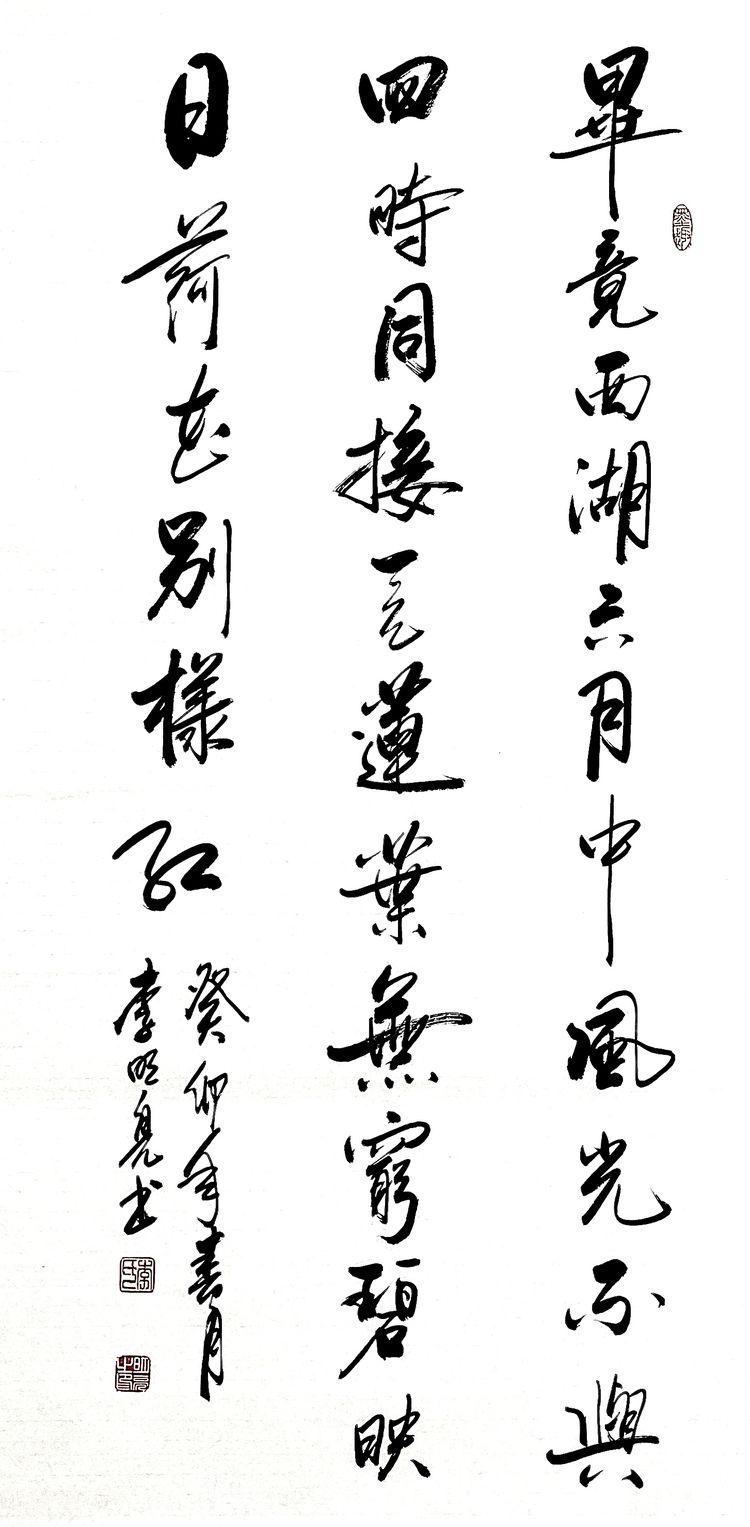 畢竟西湖六月中風光不與
四時同接天蓮葉無窮碧映
日荷花別樣紅
癸卯年春月
李明亮书
李氏